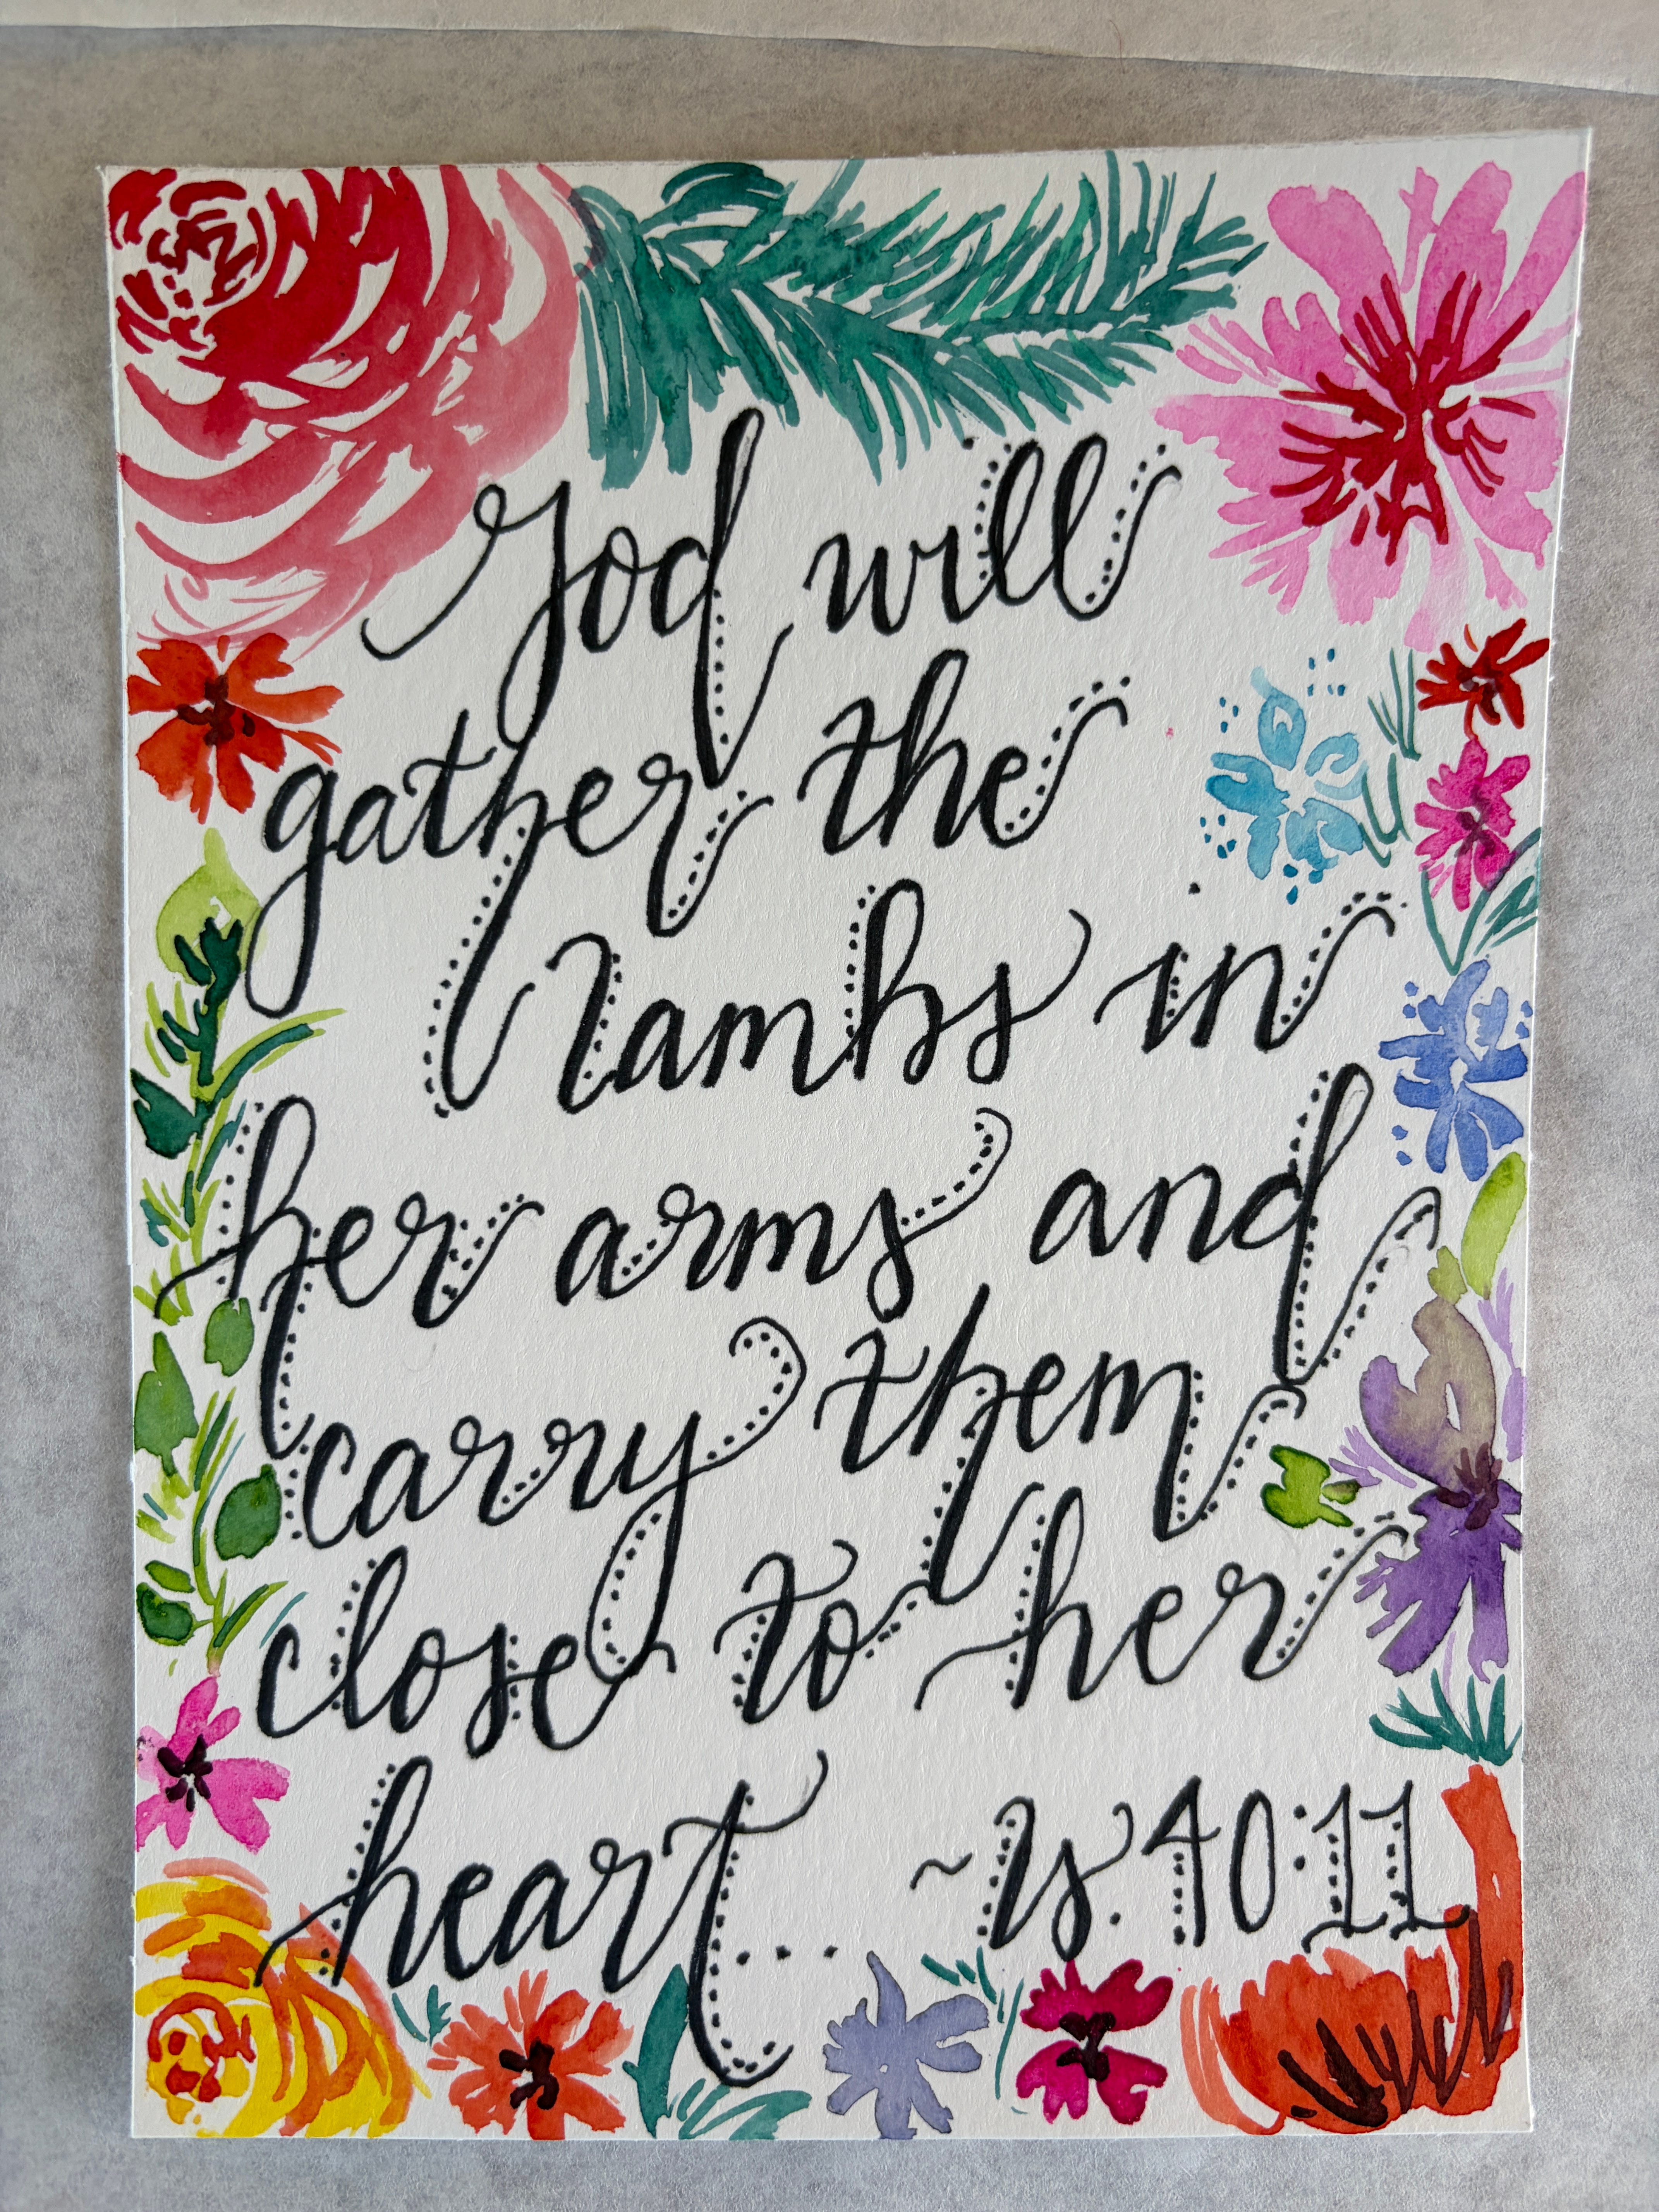 God will
gather the
lambs in
her arms and
carry them
close to her
heart... ~Is. 40:11